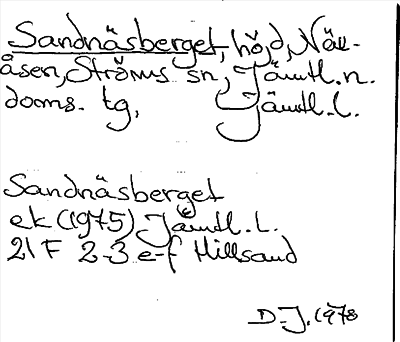 Sandnäsberget, höjd, Näv-
åsen, Ströms sn, Jämtl. n.
doms. tg, Jämtl. l.
Sandnäsberget
ek (1975) Jämtl. l.
21 F 2-3 e-f Hillsand
D-J. 1978